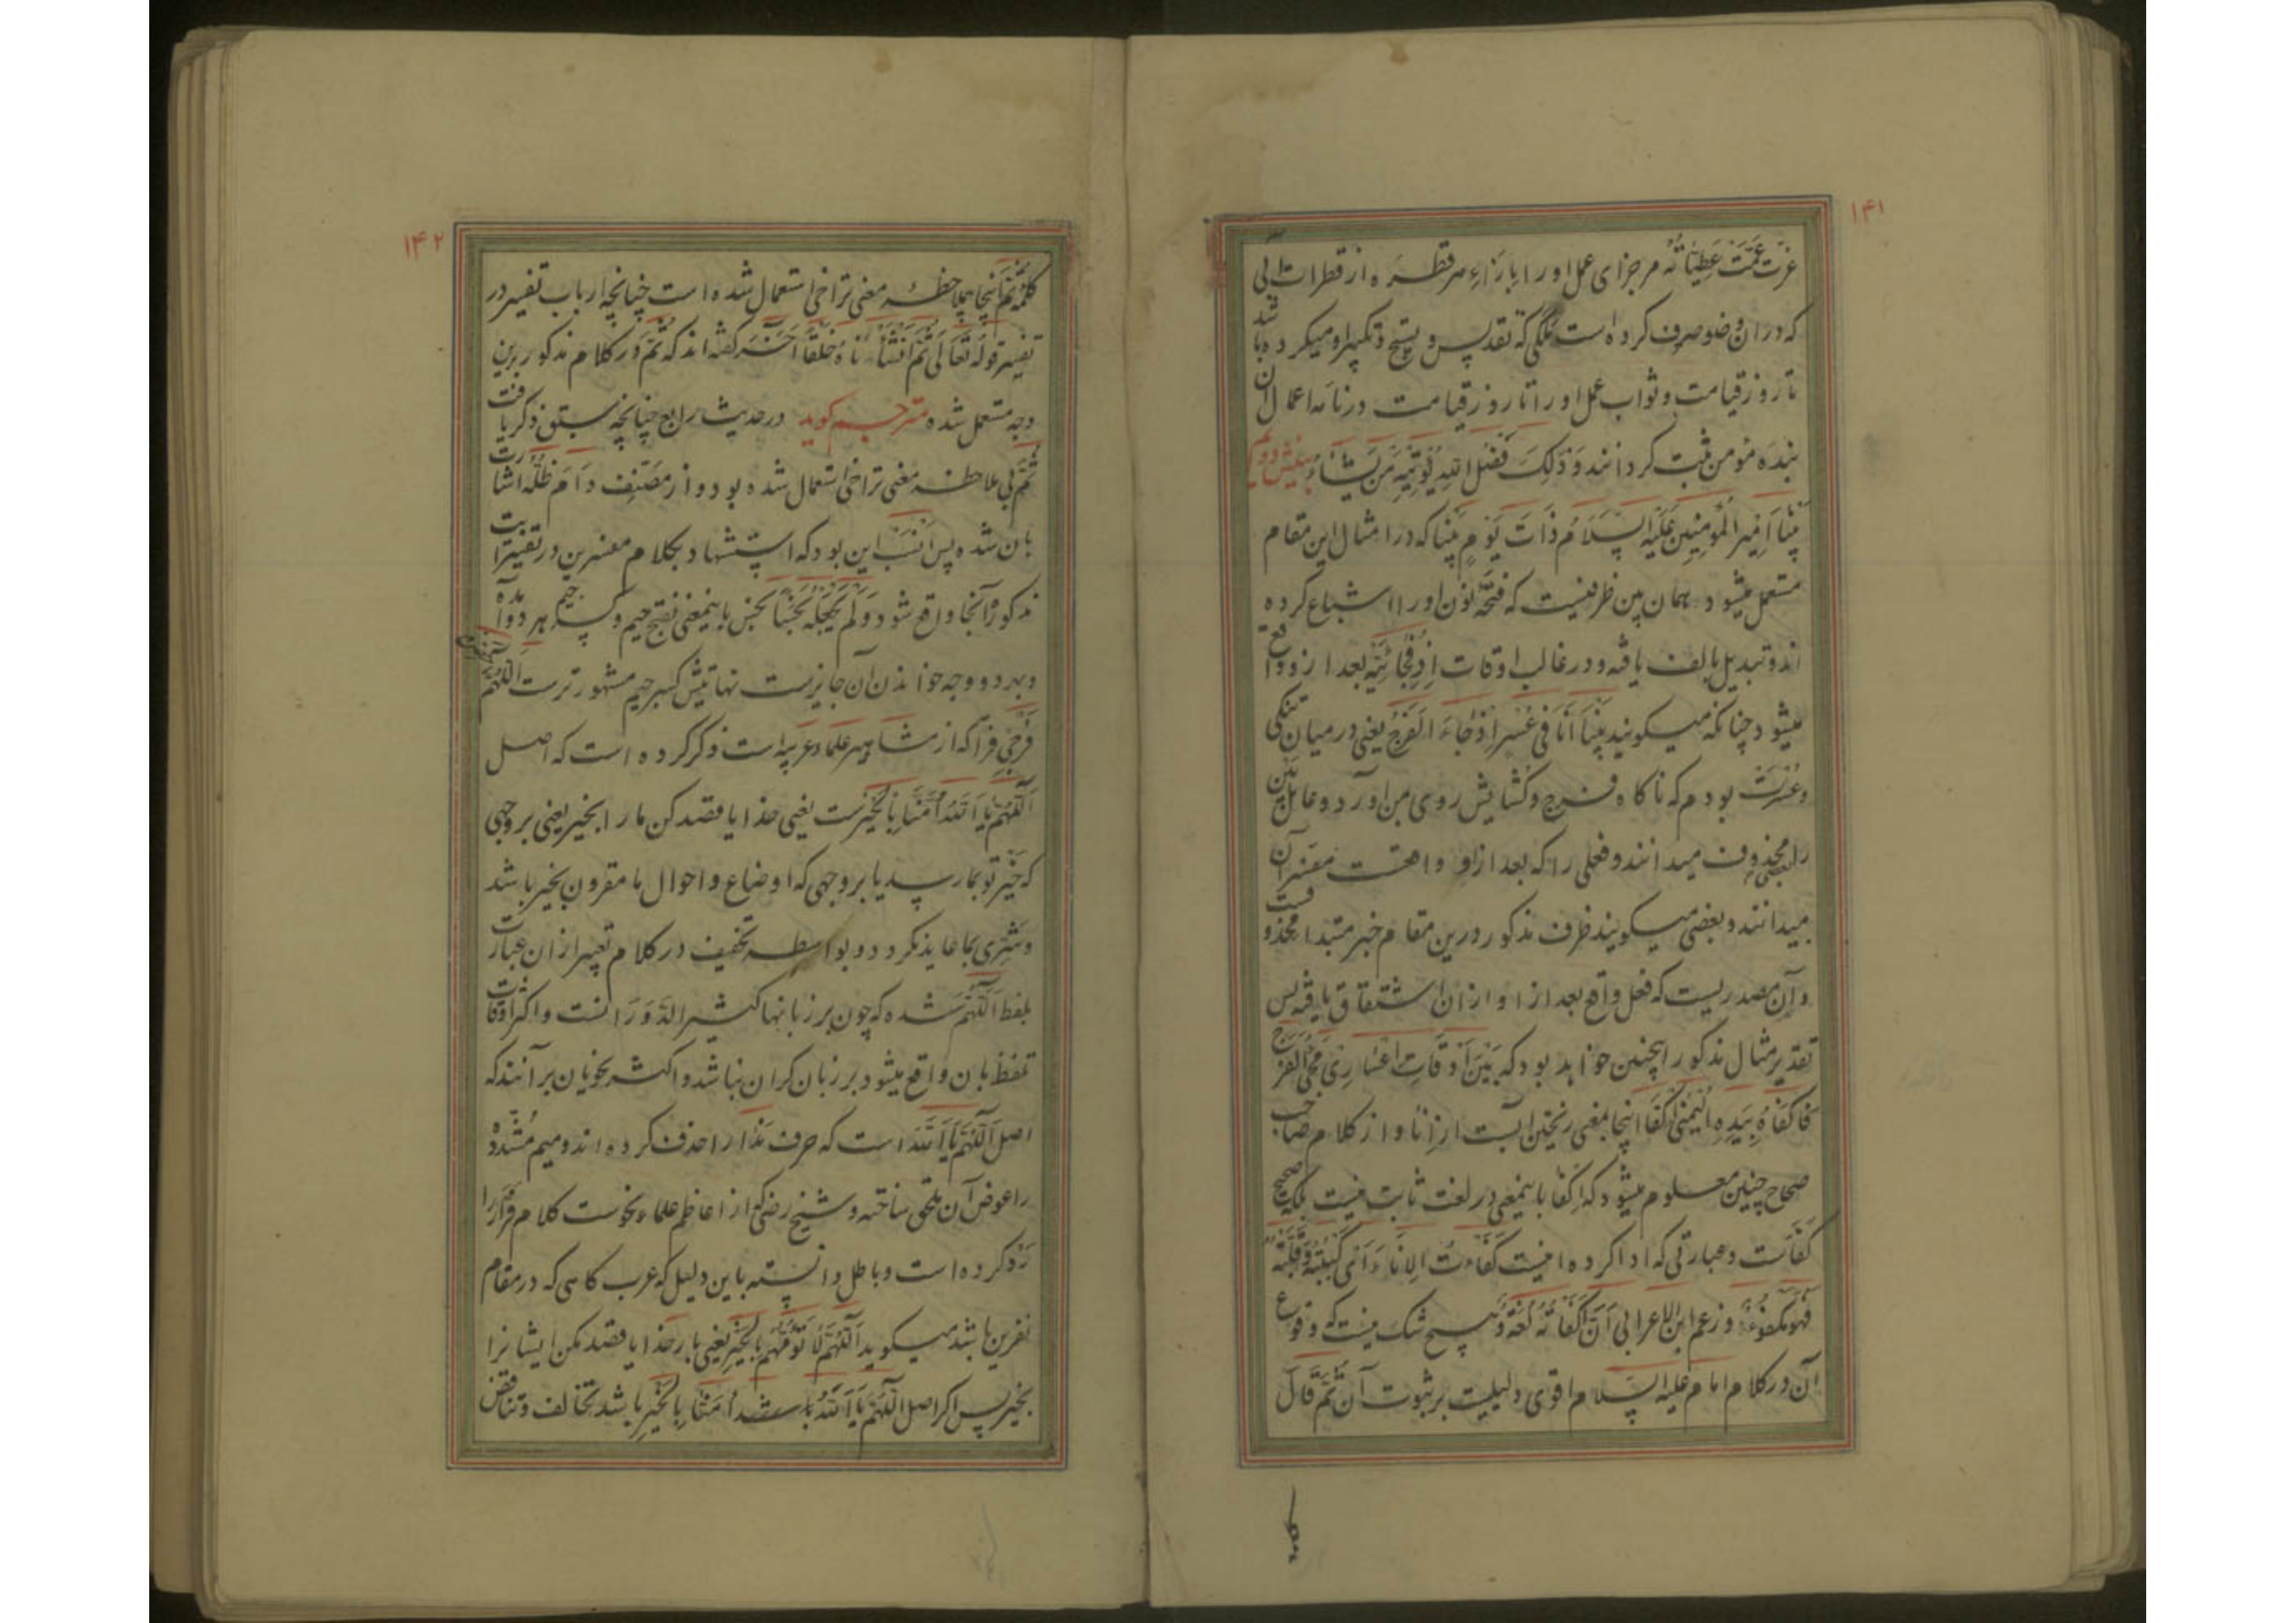 ۱۴۱
عزت عمّت عطیّاته مر جزای عمل او را بازاء هر قطره از قطرات آبی
که در ان وضو صرف کرده است ملکی که تقدیس و تسبیح و تکبیر او میکرده باشد
تا روز قیامت و ثواب عمل او را تا روز قیامت در نامه اعمال ان
بنده مؤمن ثبت کردانند وَ ذٰلِکَ فَضْلُ اللهِ یُؤتِیهِ مَن یَشَاءُ بینش دویم
بَیْنَا اَمِیرُ الْمُؤمِنِینَ عَلَیْهِ السَّلَامُ ذَاتَ یَوْمٍ بَینا که در امثال این مقام
مستعمل میشود همان بین ظرفیست که فتحه نون او را اشباع کرده
اند و تبدیل بالف یافه و در غالب اوقات اِذ فُجائیّه بعد از و واقع
میشود چنانکه میکویند بَیْنَا اَنَا فی عُسْرٍ اِذْ جَاءَ الْفَرَجُ یعنی در میان تنکی
و عُسرت بودم که ناکاه فرج و کشایش روی بمن اورد و عامل بَین
را بعضی محذوف میدانند و فعلی را که بعد از او واقعست مفسر آن
میدانند و بعضی میکویند ظرف مذکور درین مقام خبر مبتدا محذوفست
و آن مصدریست که فعل واقع بعد از او از ان اشتقاق یافه پس
تقدیر مثال مذکور اینچنین خواهد بود که بَیْنَ اَوْقَاتِ اِعْسَارِی مَجِیءُ الْفَرَجِ
فَاَکْفَاَهُ بِیَدِهِ الْیُمْنٰی اکفا اینجا بمعنی ریختن ابست از اِنا و از کلام صاحب
صحاح چنین معلوم میشود که اِکفا باینمعنی در لغت ثابت نیست بلکه صحیح
کَفَأست و عبارتی که ادا کرده اینست کَفَاءْتُ الاِنَاءَ اَی کَبَبْتُهُ وَ قَلَبْتُهُ
فَهُوَ مَکْفُوءٌ و زعم ابن الاعرابی اَنَّ اَکْفَاْتُهُ لُغَةٌ و هیچ شک نیست که وقوع
آن در کلام امام علیه السلام اقوی دلیلیست بر ثبوت آن ثُمَّ قَالَ
کلمه
۱۴۲
کلمه ثُمَّ اینجا بملاحظه معنی تراخی استعمال شده است چنانچه ارباب تفسیر در
تفسیر قوله تَعَالٰی ثُمَّ اَنْشَأْنَاهُ خَلْقاً آخَرَ کفته اند که ثُمَّ در کلام مذکور برین
وجه مستعمل شده مترجم کوید در حدیث رابع چنانچه سبق ذکر یافت
ثمَّ بی ملاحظه معنی تراخی استعمال شده بود و از مصنّف دَامَ ظِلُّه اشارت
بان شده پس اَنسَب این بود که استشهاد بکلام مفسرین در تفسیر ایت
مذکوره آنجا واقع شود وَ لَمْ یَجْعَلْهُ نَجَساً نجس باینمعنی بفتح جیم و کسر جیم هر دو آمده
و بهر دو وجه خواندن آن جایزست نهایتش کسر جیم مشهورترست اَللّٰهُمَّ حَصِّنْ
فَرْجِی فرّا که از مشاهیر علماء عربیه است ذکر کرده است که اصل
اَللّٰهُمَّ یَا اَللهُ اُمَّنَا بِالْخَیْرِست یعنی خدایا قصد کن ما را بخیر یعنی بر وجهی
که خَیر تو بما رسد یا بر وجهی که اوضاع و احوال ما مقرون بخیر باشد
و شرّی بما عاید نکردد و بواسطه تخفیف در کلام تعبیر از ان عبارت
بلفظ اَللّٰهُمَّ شده که چون بر زبانها کثیر الدَّوَرَانست و اکثر اوقات
تلفظ بان واقع میشود بر زبان کران نباشد و اکثر نحویان بر آنند که
اصل اَللّٰهُمَّ یَا اَللهُ است که حرف ندا را حذف کرده اند و میم مشدّده
را عوض آن ملحق ساخته و شیخ رضی که از اعاظم علماء نحوست کلام فرّا را
رَدّ کرده است و باطل دانسته باین دلیل که عرب کاهی که در مقام
نفرین باشد میکوید اَللّٰهُمَّ لَا تَؤُمَّهُمْ بِالْخَیْرِ یعنی بار خدایا قصد مکن ایشانرا
بخیر پس اکر اصل اَللّٰهُمَّ یَا اَللهُ اُمَّنَا بِالْخَیْرِ باشد تخالف و تناقض